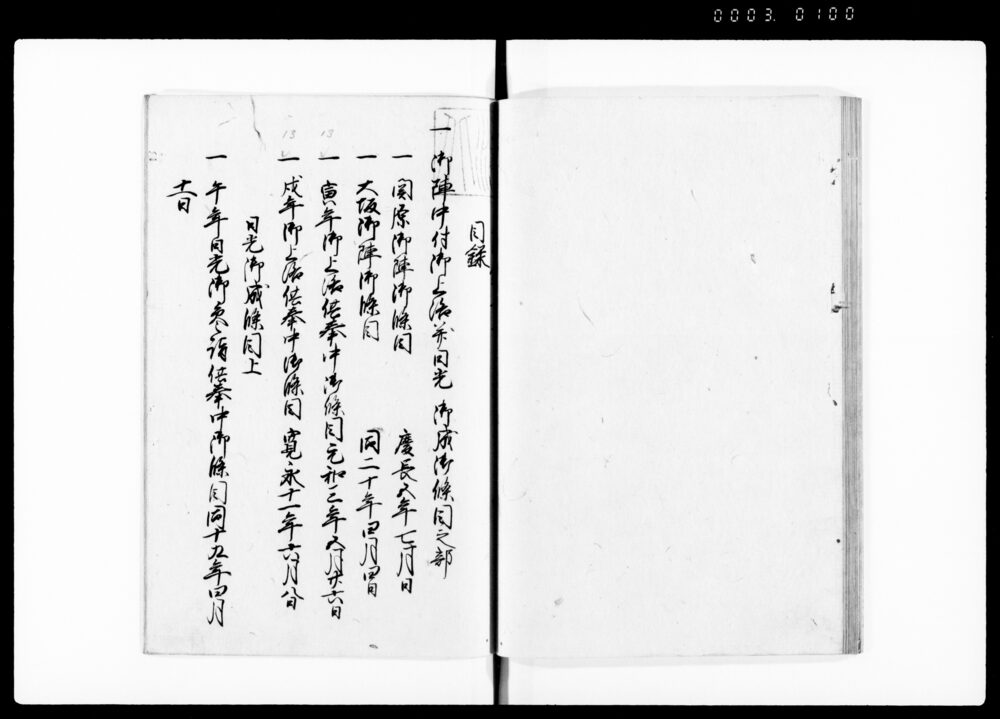 0003. 0100
目録
一 御陣中付御上洛并日光 御成御條目之部
一 関原御陣御條目 慶長五年七月日
一 大坂御陣御條目 同二十年四月四日
一 寅年御上洛供奉中御條目 元和三年五月廿六日
一 戌年御上洛供奉中御條目 寛永十一年六月八日
日光御成條目上
一 午年日光御参詣供奉中御條目 同十九年四月
十一日
13
13